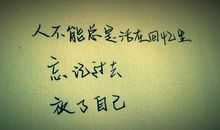 人不能总是活在回忆里
忘记过去
放了自己